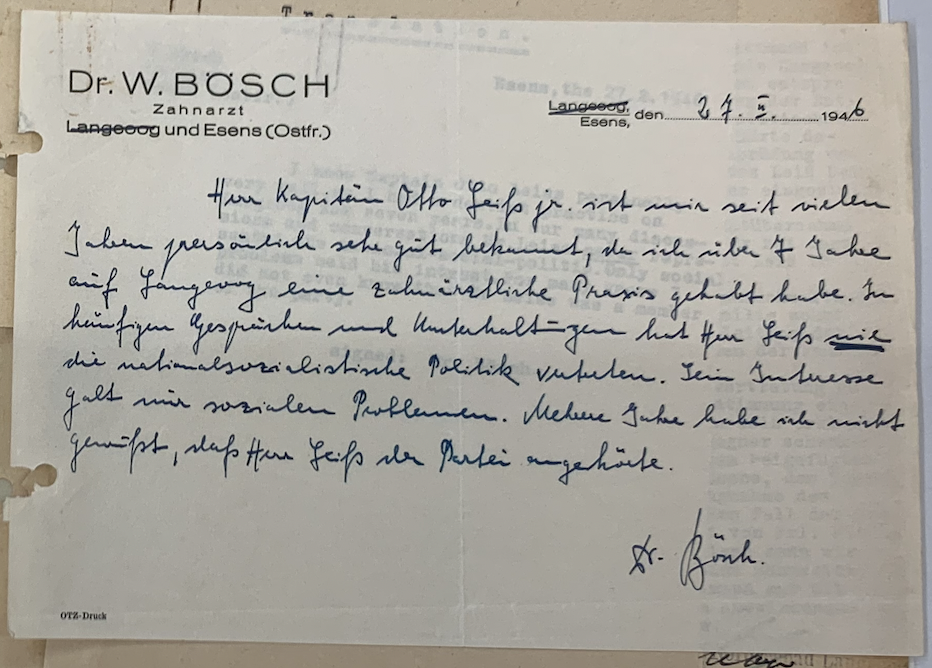 Translation.
Dr. W. BÖSCH
Zahnarzt
Langeoog und Esens (Ostfr.)
Langeoog,
Esens, den 27. II. 1946
Herr Kapitän Otto Leiß jr. ist mir seit vielen
Jahren persönlich sehr gut bekannt, da ich über 7 Jahre
auf Langeoog eine zahnärztliche Praxis gehabt habe. In
häufigen Gesprächen und Unterhaltungen hat Herr Leiß nie
die nationalsozialistische Politik vertreten. Sein Interesse
galt nur sozialen Problemen. Mehrere Jahre habe ich nicht
gewußt, daß Herr Leiß der Partei angehörte.
Dr. Bösch.
OTZ-Druck